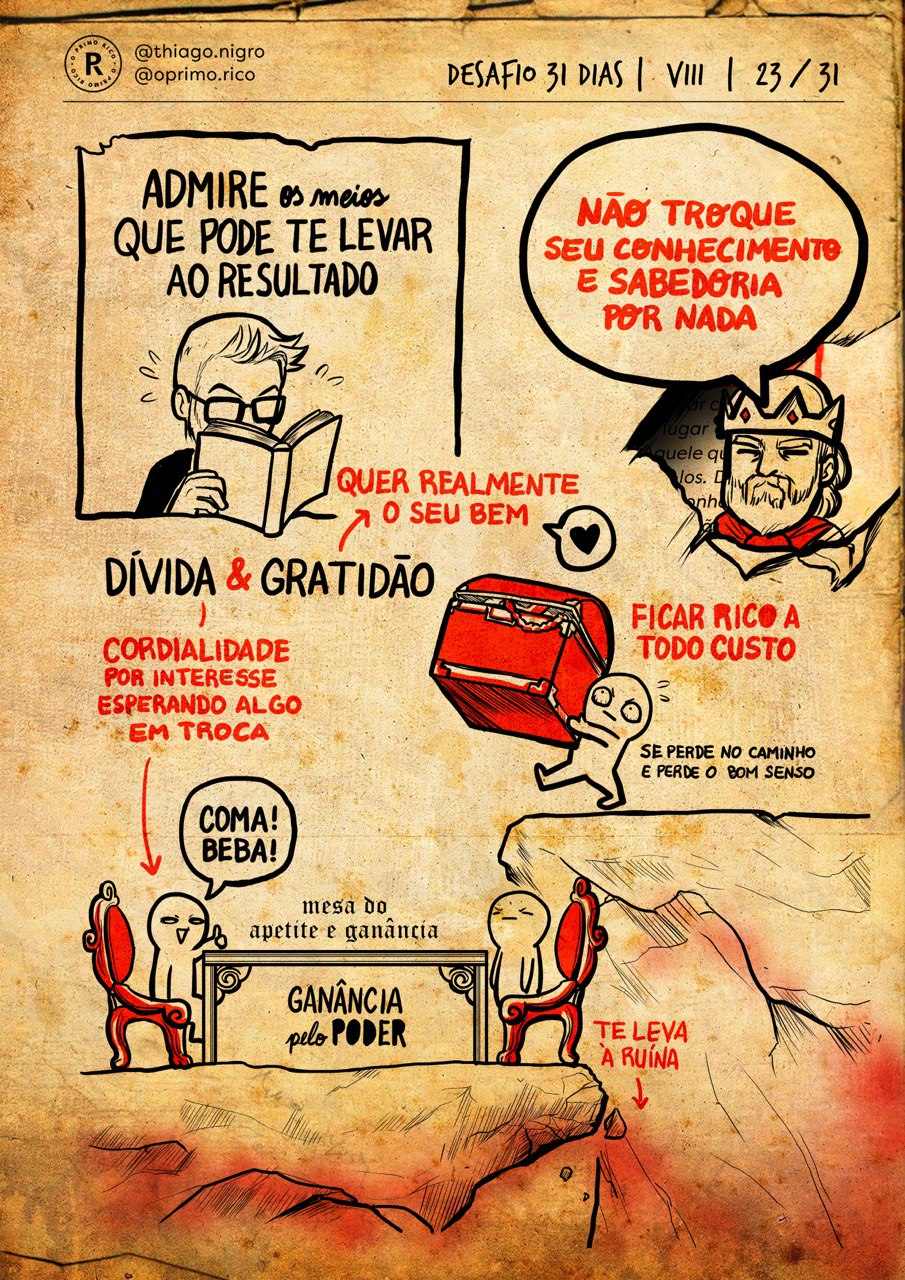 O PRIMO RICO • O PRIMO RICO •
R
@thiago.nigro
@oprimo.rico
DESAFIO 31 DIAS | VIII | 23 / 31
ADMIRE os meios
QUE PODE TE LEVAR
AO RESULTADO
NÃO TROQUE
SEU CONHECIMENTO
E SABEDORIA
POR NADA
lugar
los. D
QUER REALMENTE
O SEU BEM
DÍVIDA & GRATIDÃO
CORDIALIDADE
POR INTERESSE
ESPERANDO ALGO
EM TROCA
FICAR RICO A
TODO CUSTO
SE PERDE NO CAMINHO
E PERDE O BOM SENSO
COMA!
BEBA!
mesa do
apetite e ganância
GANÂNCIA
pelo PODER
TE LEVA
À RUÍNA